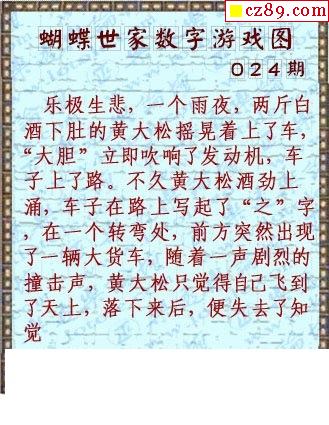 cz89.com
蝴蝶世家数字游戏图
024期
乐极生悲，一个雨夜，两斤白
酒下肚的黄大松摇晃着上了车，
“大胆”立即吹响了发动机，车
子上了路。不久黄大松酒劲上
涌，车子在路上写起了“之”字
，在一个转弯处，前方突然出现
了一辆大货车，随着一声剧烈的
撞击声，黄大松只觉得自己飞到
了天上，落下来后，便失去了知
觉